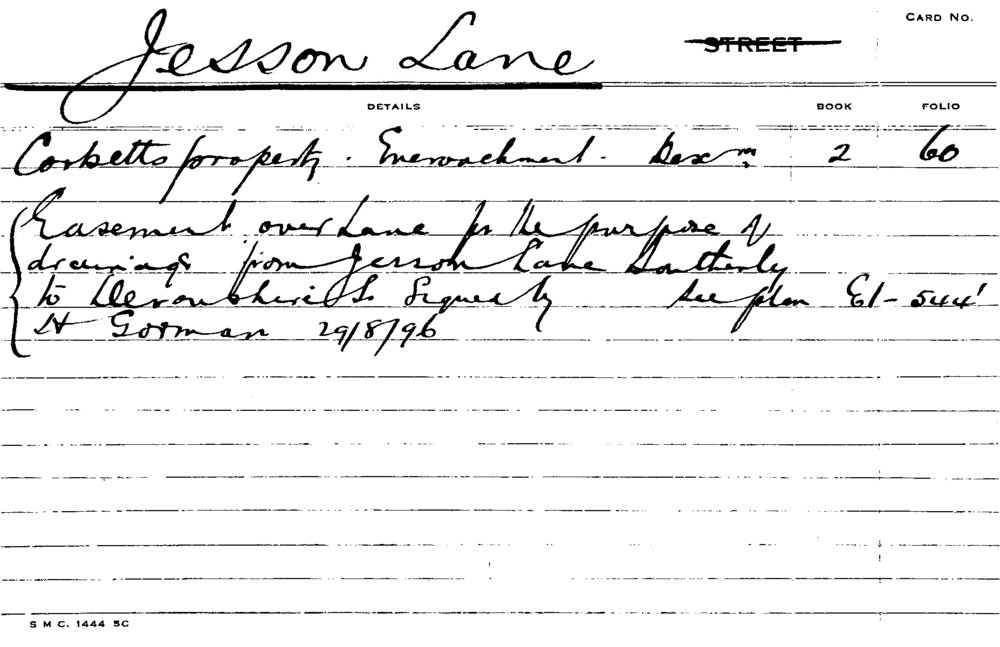 CARD NO.
Jesson Lane STREET
DETAILS BOOK FOLIO
Corbetts property. Encroachment. 2 60
Easement over Lane for the purpose of
drainage from Jesson Lane Southerly
to Devonshire St Signed by See plan E1-544'
H Gorman 29/8/96
S M C. 1444 5C